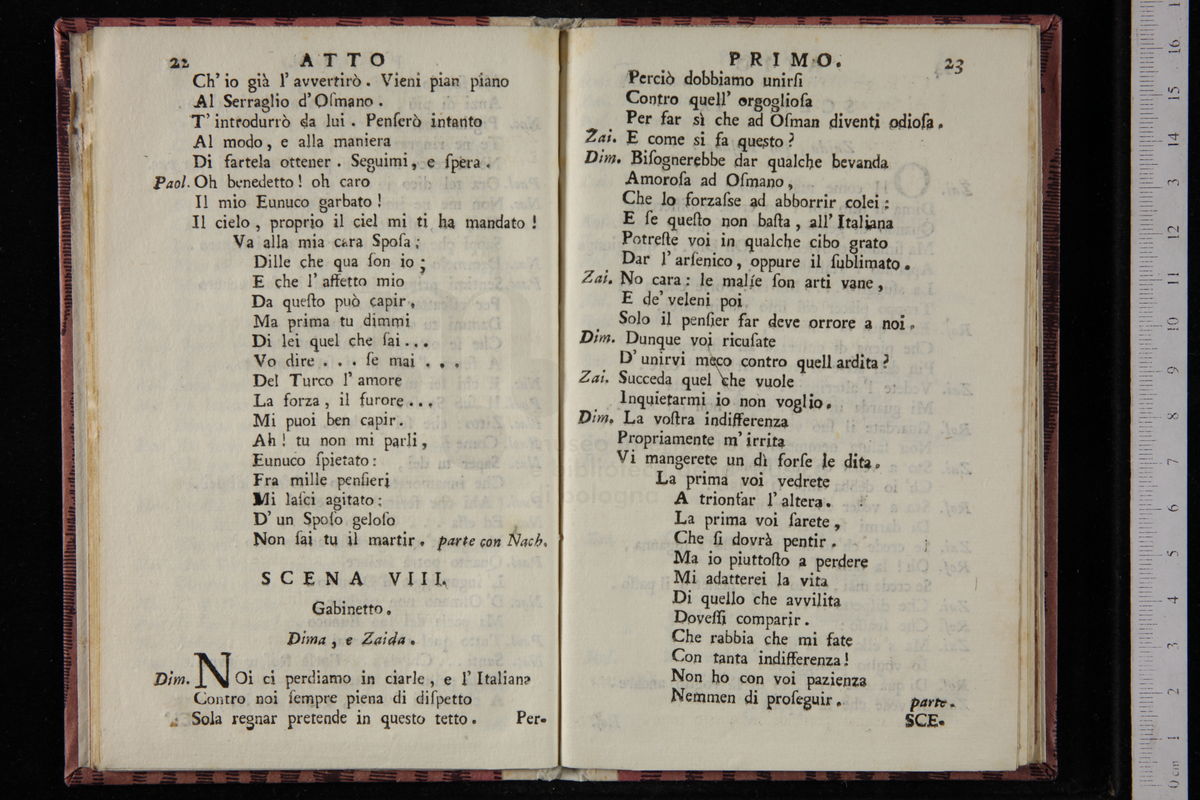 22 ATTO
Ch' io già l' avvertirò. Vieni pian piano
Al Serraglio d' Oſmano.
T' introdurrò da lui. Penſerò intanto
Al modo, e alla maniera
Di fartela ottener. Seguimi, e ſpera.
Paol. Oh benedetto! oh caro
Il mio Eunuco garbato!
Il cielo, proprio il ciel mi ti ha mandato!
Va alla mia cara Spoſa;
Dille che qua ſon io;
E che l' affetto mio
Da queſto può capir,
Ma prima tu dimmi
Di lei quel che ſai...
Vo dire... ſe mai...
Del Turco l' amore
La forza, il furore...
Mi puoi ben capir.
Ah! tu non mi parli,
Eunuco ſpietato:
Fra mille penſieri
Mi laſci agitato:
D' un Spoſo geloſo
Non ſai tu il martir. parte con Nach.
SCENA VIII.
Gabinetto.
Dima, e Zaida.
Dim. NOi ci perdiamo in ciarle, e l' Italiana
Contro noi ſempre piena di diſpetto
Sola regnar pretende in questo tetto. Per-
PRIMO. 23
Perciò dobbiamo unirſi
Contro quell' orgoglioſa
Per far sì che ad Oſman diventi odioſa.
Zai. E come si fa questo?
Dim. Biſognerebbe dar qualche bevanda
Amoroſa ad Oſmano,
Che lo forzaſse ad abborrir colei:
E ſe queſto non baſta, all' Italiana
Potreſte voi in qualche cibo grato
Dar l' arſenico, oppure il ſublimato.
Zai. No cara: le malíe ſon arti vane,
E de' veleni poi
Solo il penſier far deve orrore a noi.
Dim. Dunque voi ricuſate
D' unirvi meco contro quell ardita?
Zai. Succeda quel che vuole
Inquietarmi io non voglio.
Dim. La voſtra indifferenza
Propriamente m' irrita
Vi mangerete un dì forſe le dita.
La prima voi vedrete
A trionfar l' altera.
La prima voi ſarete,
Che ſi dovrà pentir.
Ma io piuttoſto a perdere
Mi adatterei la vita
Di quello che avvilita
Doveſſi comparir.
Che rabbia che mi fate
Con tanta indifferenza!
Non ho con voi pazienza
Nemmen di proſeguir. parte.
SCE-